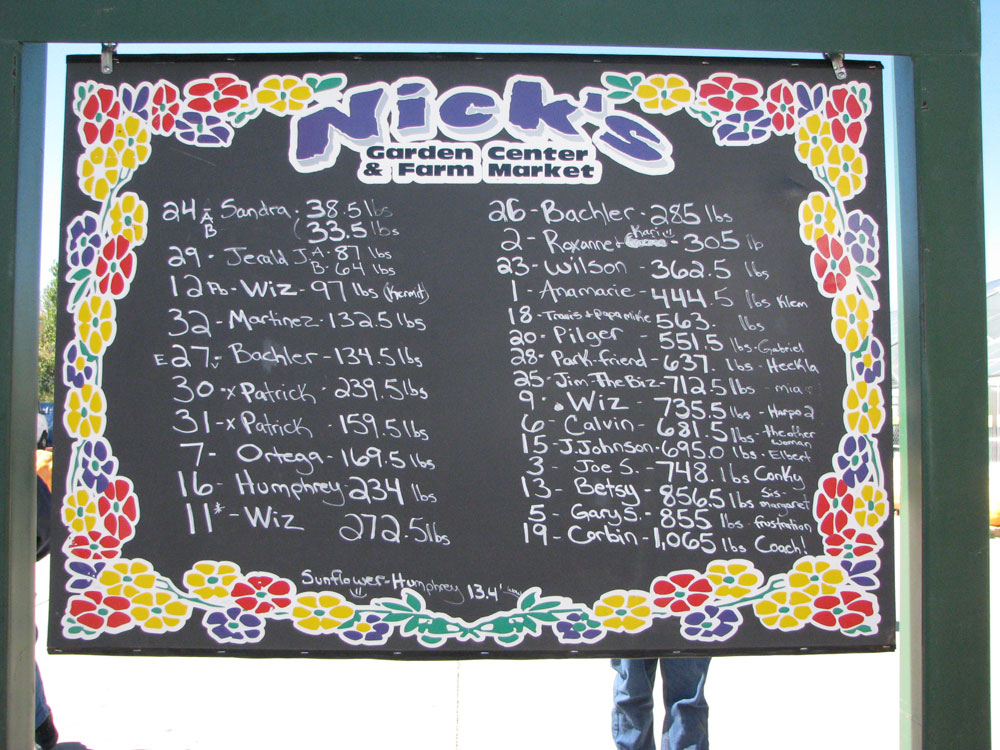 Nick's
Garden Center
& Farm Market
24 A Sandra: 38.5 lbs
B ( 33.5 lbs
29 - Jerald J. A - 87 lbs
B - 64 lbs
12 Pb - Wiz - 97 lbs (Kermit)
32 - Martinez - 132.5 lbs
E 27 - Bachler - 134.5 lbs
30 - x Patrick - 239.5 lbs
31 - x Patrick - 159.5 lbs
7 - Ortega - 169.5 lbs
16 - Humphrey - 234 lbs
11* - Wiz 272.5 lbs
26 - Bachler - 285 lbs
2 - Roxanne + Kari - 305 lb
23 - Wilson - 362.5 lbs
1 - Anamarie - 444.5 lbs Klem
18 - Travis + Papa Mike 563. lbs
20 - Pilger - 551.5 lbs - Gabriel
28 - Park-friend - 637. lbs - Heckla
25 - Jim-The Biz - 712.5 lbs - mia
9 - Wiz - 735.5 lbs - Harpo 2
6 - Calvin - 681.5 lbs - the other woman
15 - J. Johnson - 695.0 lbs - Elbert
3 - Joe S. - 748. lbs Conky
13 - Betsy - 856.5 lbs Sis-margaret
5 - Gary S. - 855 lbs - frostration
19 - Corbin - 1,065 lbs Coach!
Sunflower - Humphrey 13.4'